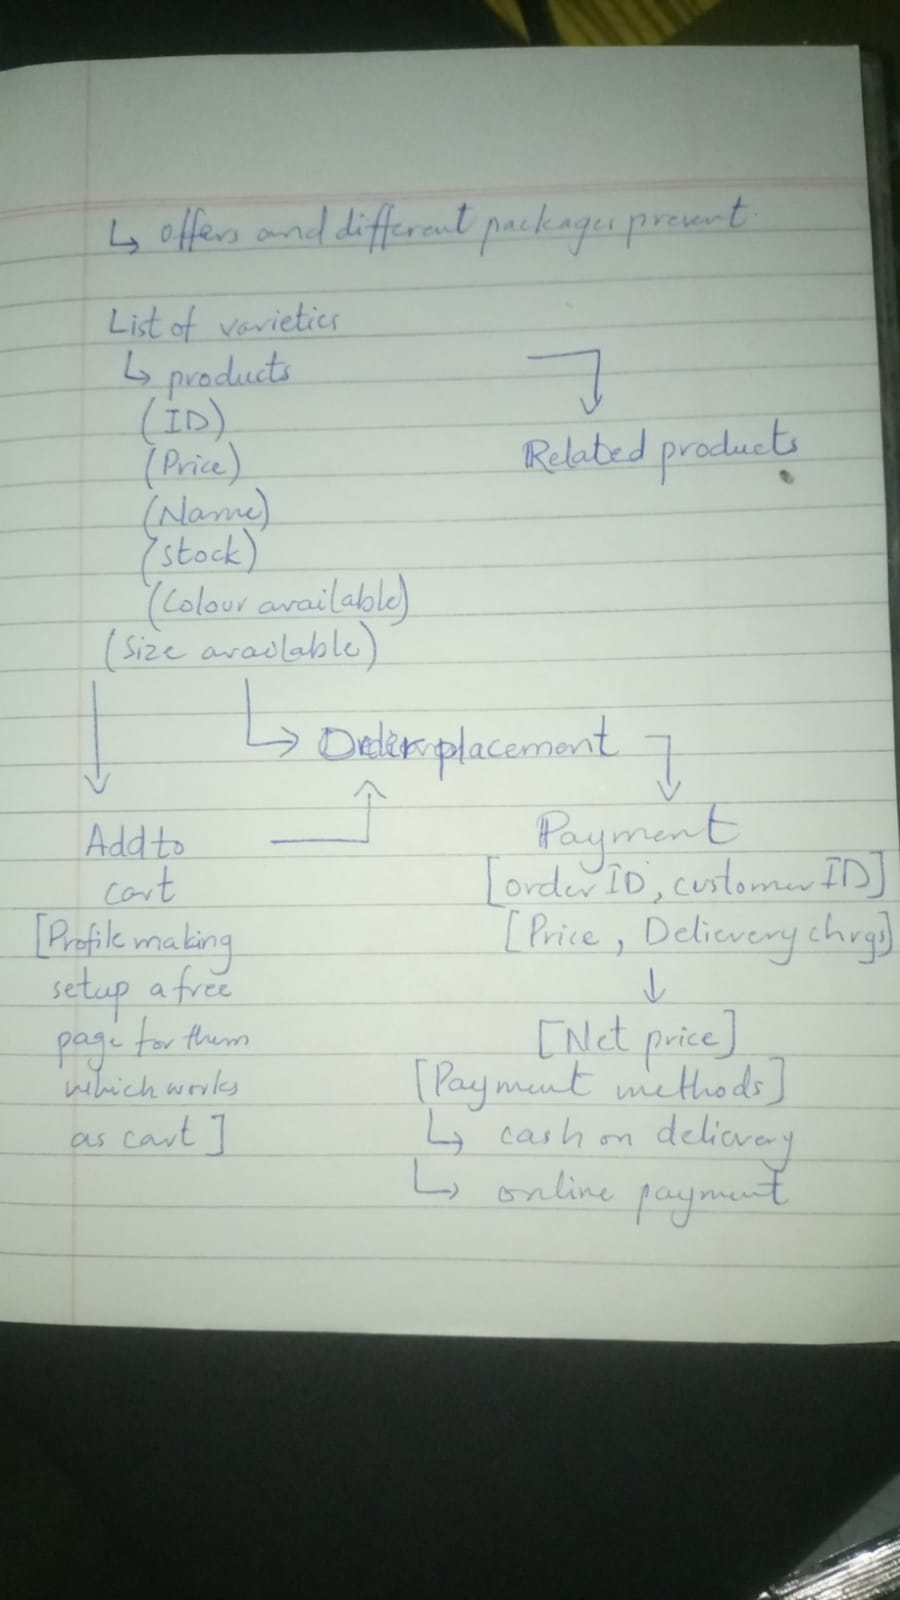 ↳ offers and different packages present.
List of varieties
↳ products
(ID)
(Price)
(Name)
(stock)
(Colour available)
(Size available)
Related products
Order placement
Add to
cart
[Profile making
setup a free
page for them
which works
as cart]
Payment
[order ID, customer ID]
[Price, Delievery chrgs]
↓
[Net price]
[Payment methods]
↳ cash on delievery
↳ online payment